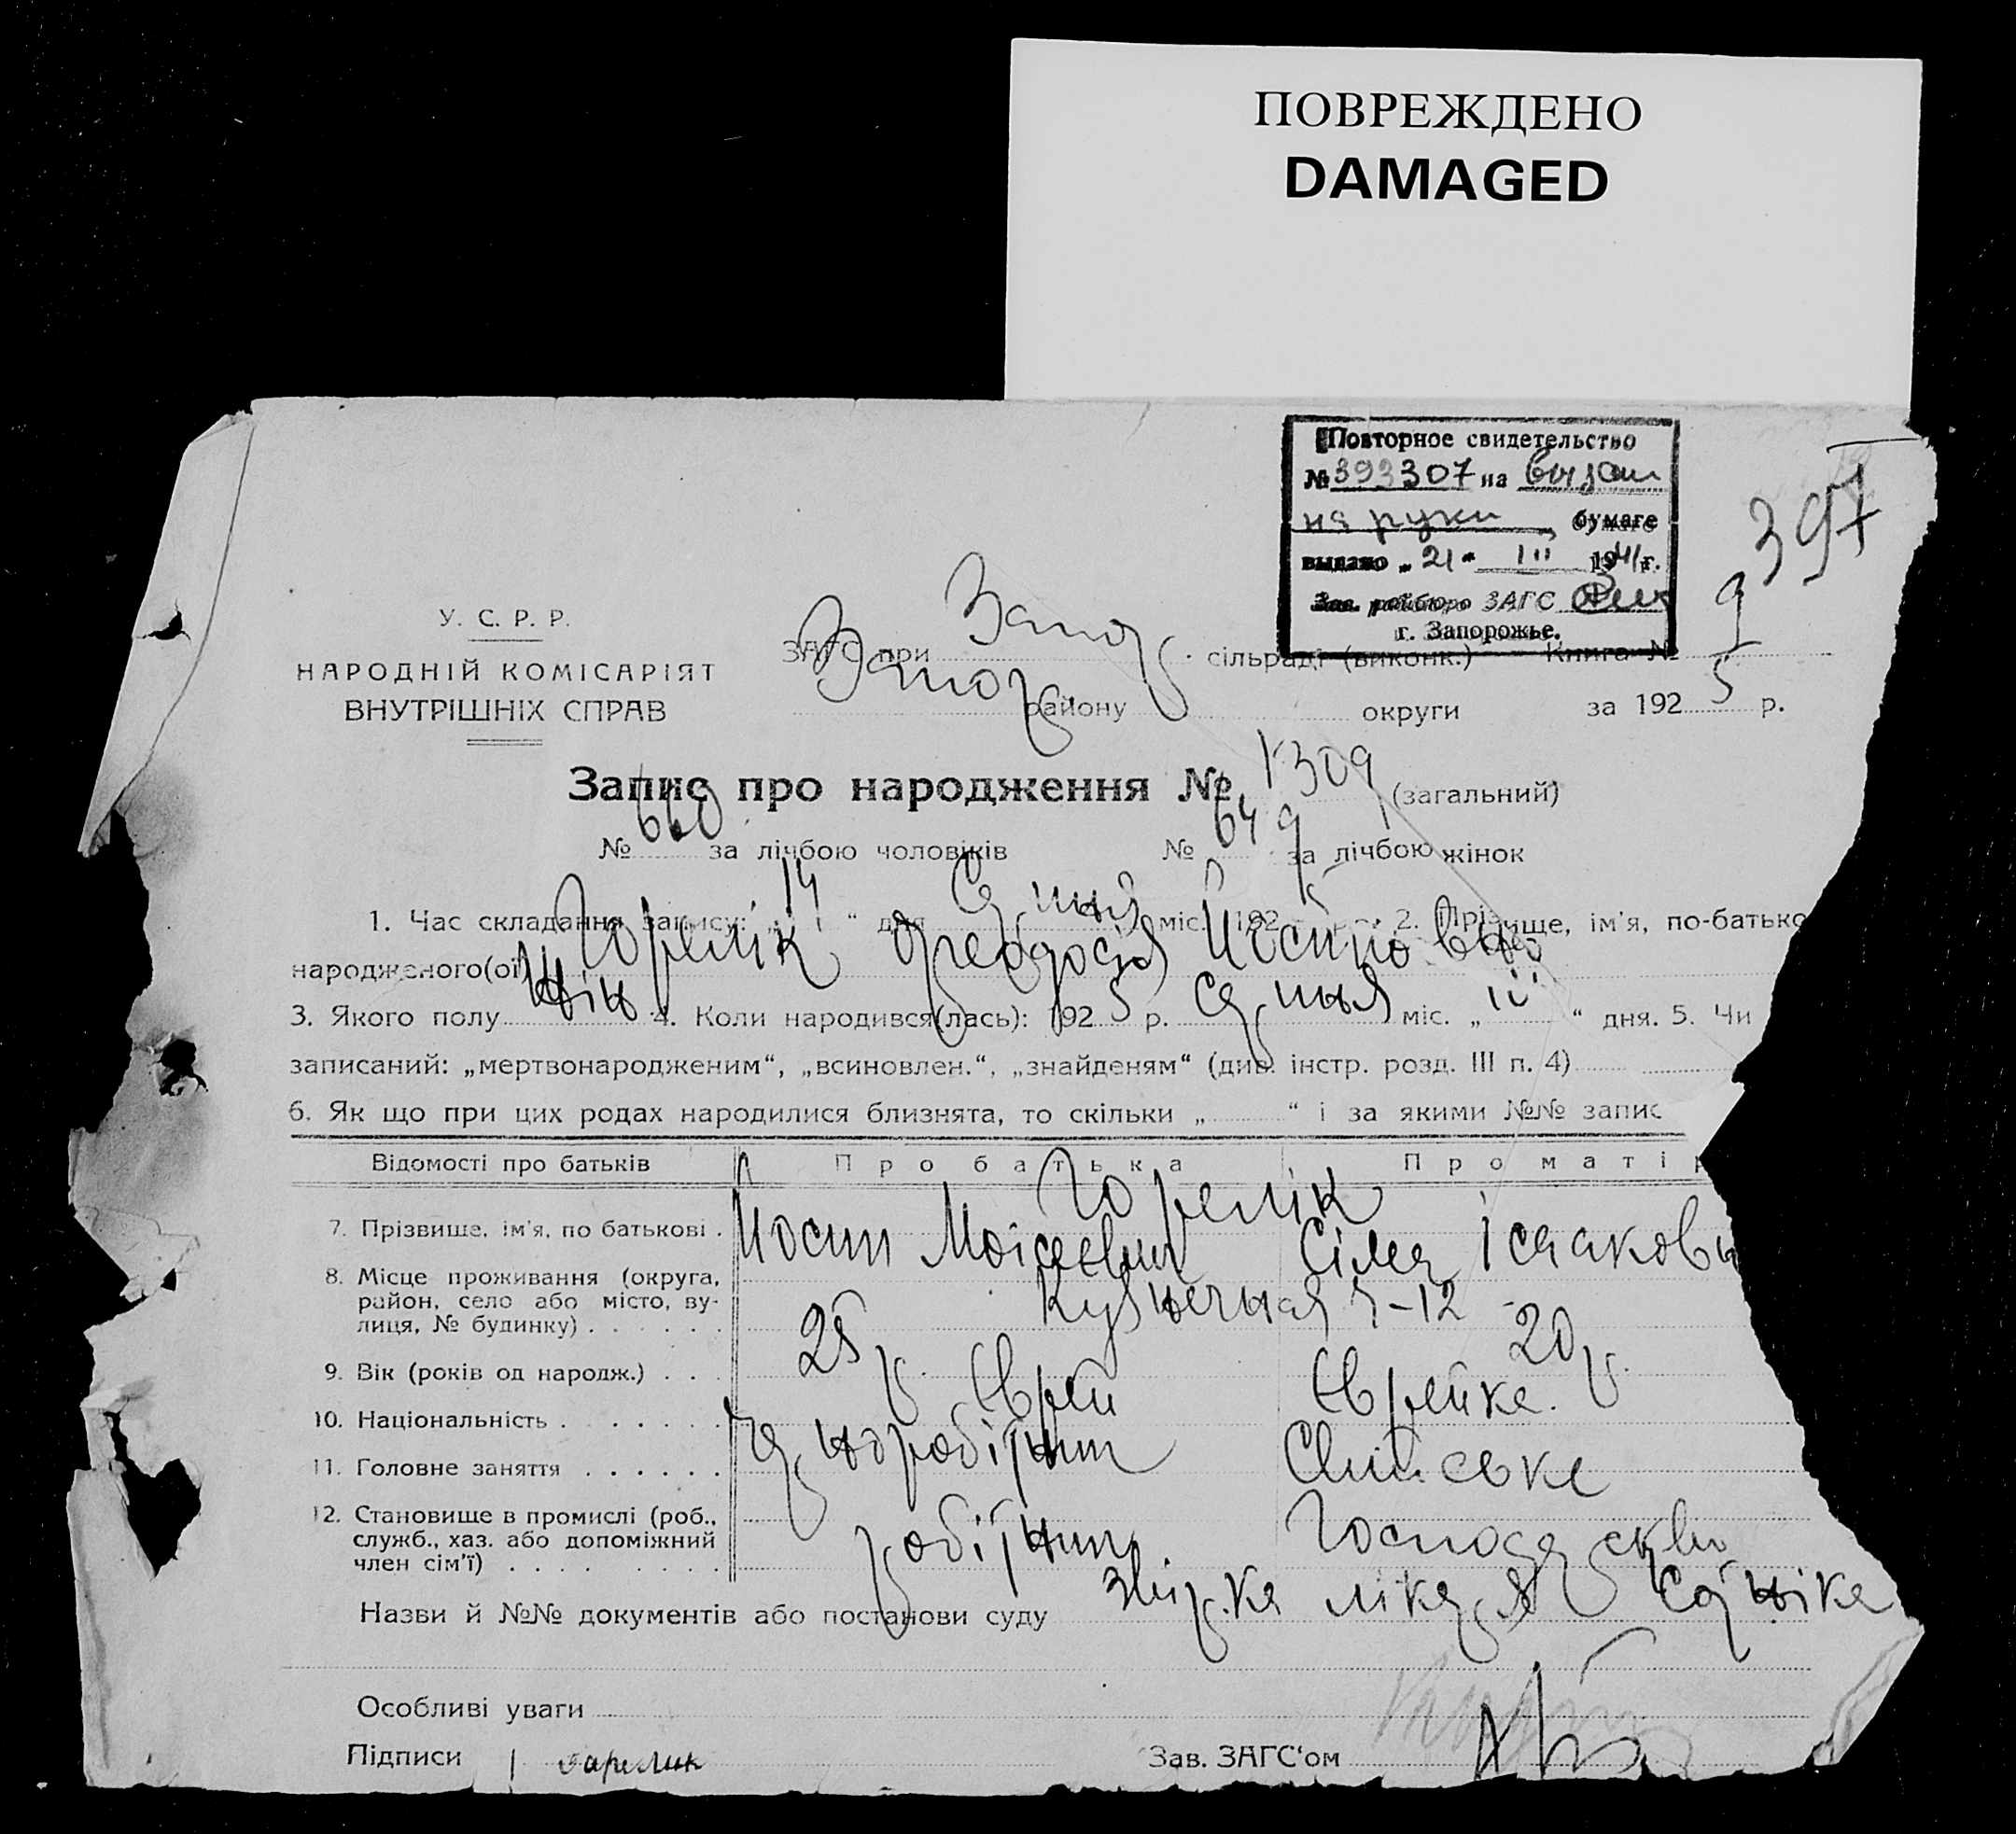 ПОВРЕЖДЕНО
DAMAGED
Повторное свидетельство
№ 393307 на
на руки бумаге
выдано „21“ III 1941 г.
Зав. райбюро ЗАГС
г. Запорожье.
397
У. С. Р. Р.
НАРОДНІЙ КОМІСАРІЯТ
ВНУТРІШНІХ СПРАВ
ЗАГС при Запор сільраді (виконк.) Книга № 9
Запор району округи за 1925 р.
Запис про народження № 1309 (загальний)
№ 660 за лічбою чоловіків № 649 за лічбою жінок
1. Час складання запису: „14“ дня міс. 192 2. Прізвище, ім'я, по-батько
народженого(ої) Горелік Феодосія Йосиповна
3. Якого полу жін 4. Коли народився(лась): 1925 р. міс. „ “ дня. 5. Чи
записаний: „мертвонародженим“, „всиновлен.“, „знайденям“ (див. інстр. розд. III п. 4)
6. Як що при цих родах народилися близнята, то скільки „ “ і за якими №№ запис
Відомості про батьків Про батька Про матір
Горелік
7. Прізвище, ім'я, по батькові . Йосип Моісеєвич Сіма Ісааковн
8. Місце проживання (округа, район, село або місто, вулиця, № будинку) . . . . . . Кузнечная 5-12
9. Вік (років од народж.) . . . 25 р. 20 р.
10. Національність . . . . . . . Єврей Єврейка.
11. Головне заняття . . . . . . чорноробітник
12. Становище в промислі (роб., служб., хаз. або допоміжний член сім'ї) . . . . . . . . робітник.
Назви й №№ документів або постанови суду лікаря
Особливі уваги
Підписи Гарелик Зав. ЗАГС'ом